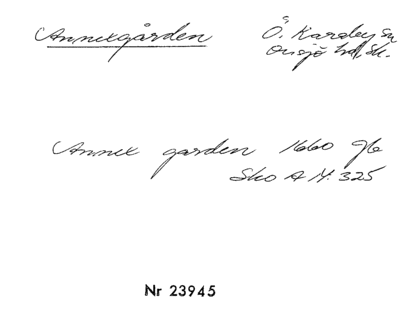 Annexgården Ö. Karaby sn
Onsjö hd, Sk.
Annex garden 1660 Jb
Sko A M. 325
Nr 23945